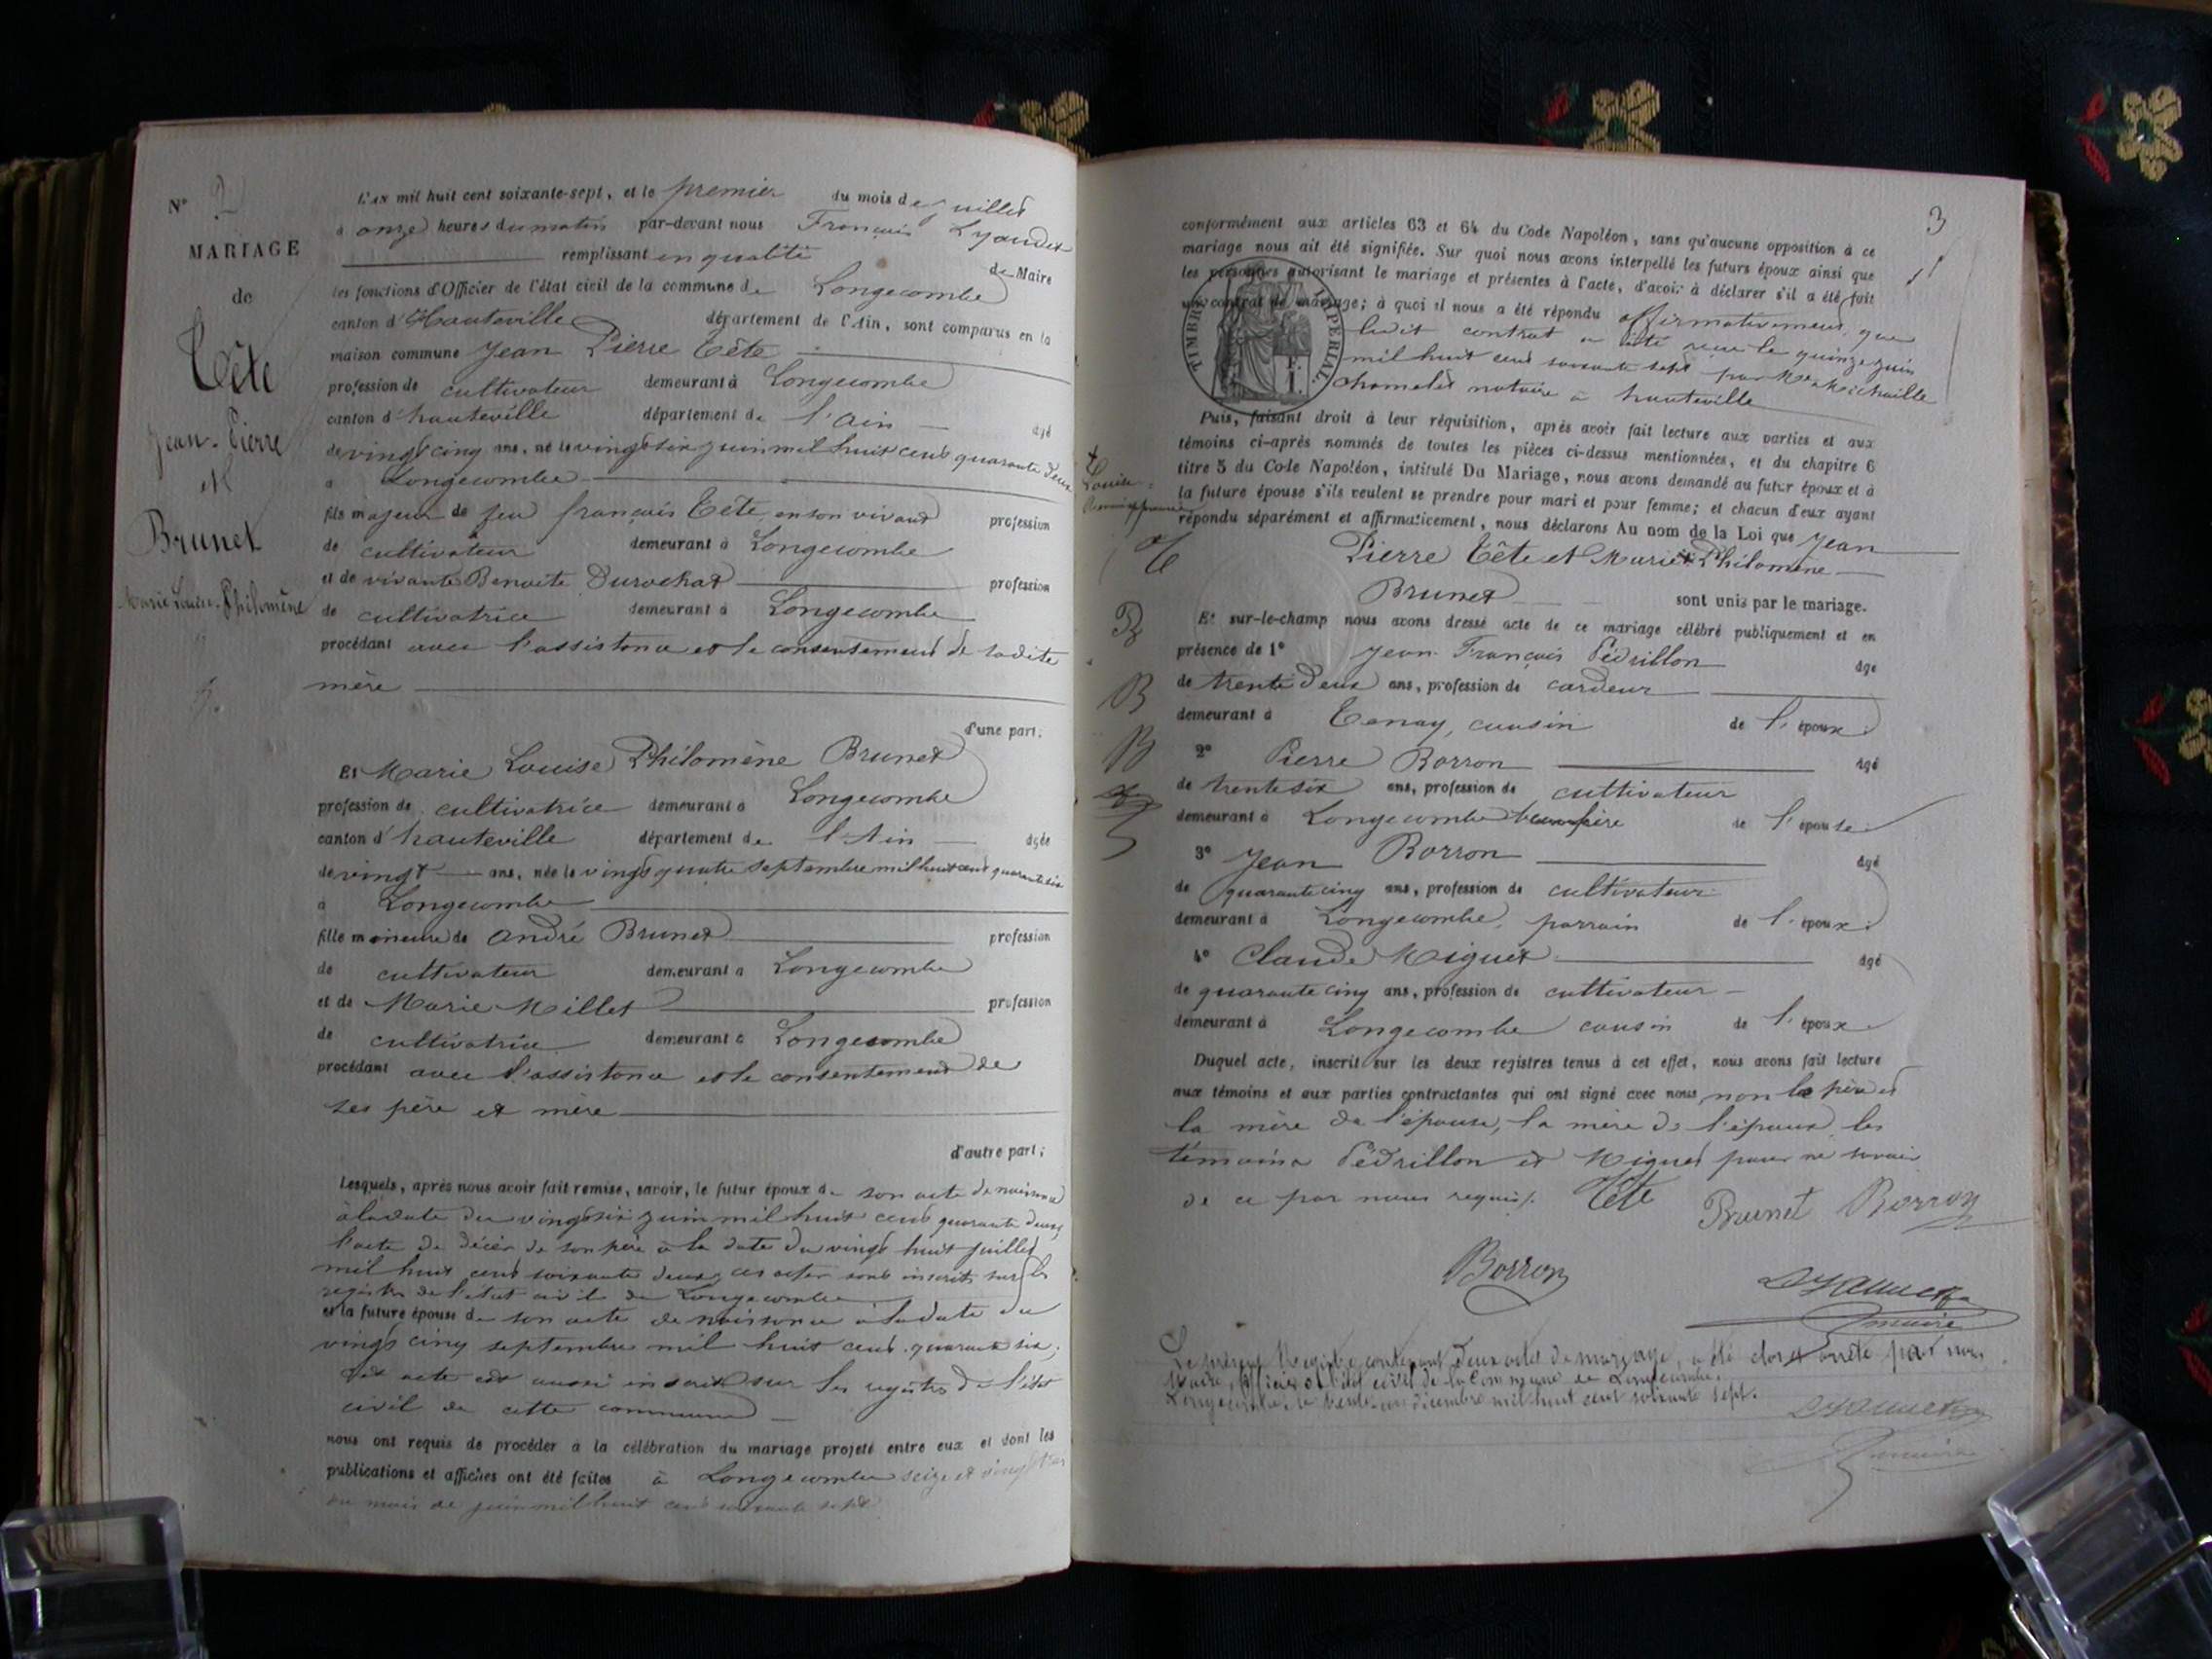 N° 2
MARIAGE
de
Tête
Jean-Pierre
et
Brunet
Marie Louise Philomène
L'an mil huit cent soixante-sept, et le premier du mois de juillet
à onze heures du matin par-devant nous François Lyaudet
remplissant en qualité de Maire
les fonctions d'Officier de l'état civil de la commune de Longecombe
canton d'Hauteville département de l'Ain, sont comparus en la
maison commune Jean Pierre Tête
profession de cultivateur demeurant à Longecombe
canton d'hauteville département de l'Ain âgé
de vingt cinq ans, né le vingt six juin mil huit cent quarante deux
à Longecombe
fils majeur de feu françois Tête en son vivant profession
de cultivateur demeurant à Longecombe
et de vivante Benoite Durochat profession
de cultivatrice demeurant à Longecombe
procédant avec l'assistance et le consentement de sadite
mère
d'une part;
Et Marie Louise Philomène Brunet
profession de cultivatrice demeurant à Longecombe
canton d'hauteville département de l'Ain âgée
de vingt ans, née le vingt quatre septembre mil huit cent quarante six
à Longecombe
fille mineure de André Brunet profession
de cultivateur demeurant à Longecombe
et de Marie Millet profession
de cultivatrice demeurant à Longecombe
procédant avec l'assistance et le consentement de
ses père et mère
d'autre part;
Lesquels, après nous avoir fait remise, savoir, le futur époux de son acte de naissance
à la date du vingt six juin mil huit cent quarante deux,
l'acte de décès de son père à la date du vingt huit juillet
mil huit cent soixante deux, ces actes sont inscrits sur les
registres de l'état civil de Longecombe
et la future épouse de son acte de naissance à la date du
vingt cinq septembre mil huit cent quarante six,
cet acte est aussi inscrit sur les registres de l'état
civil de cette commune
nous ont requis de procéder à la célébration du mariage projeté entre eux et dont les
publications et affiches ont été faites à Longecombe seize et vingt trois
du mois de juin mil huit cent soixante sept
3
conformément aux articles 63 et 64 du Code Napoléon, sans qu'aucune opposition à ce
mariage nous ait été signifiée. Sur quoi nous avons interpellé les futurs époux ainsi que
les personnes autorisant le mariage et présentes à l'acte, d'avoir à déclarer s'il a été fait
un contrat de mariage; à quoi il nous a été répondu affirmativement, que
ledit contrat a été reçu le quinze juin
mil huit cent soixante sept par Me Michaille
notaire à hauteville
TIMBRE IMPERIAL
F.
1.
Puis, faisant droit à leur réquisition, après avoir fait lecture aux parties et aux
témoins ci-après nommés de toutes les pièces ci-dessus mentionnées, et du chapitre 6
titre 5 du Code Napoléon, intitulé Du Mariage, nous avons demandé au futur époux et à
la future épouse s'ils veulent se prendre pour mari et pour femme; et chacun d'eux ayant
répondu séparément et affirmativement, nous déclarons Au nom de la Loi que Jean
Pierre Tête et Marie Philomène
Brunet sont unis par le mariage.
+ Louise
T
B
B
B
Et sur-le-champ nous avons dressé acte de ce mariage célébré publiquement et en
présence de 1° Jean François Pédrillon âgé
de trente deux ans, profession de cardeur
demeurant à Tenay, cousin de l'époux
2° Pierre Borron âgé
de trente six ans, profession de cultivateur
demeurant à Longecombe beaufrère de l'épouse
3° Jean Borron âgé
de quarante cinq ans, profession de cultivateur
demeurant à Longecombe, parrain de l'époux
4° Claude Miguet âgé
de quarante cinq ans, profession de cultivateur
demeurant à Longecombe cousin de l'époux
Duquel acte, inscrit sur les deux registres tenus à cet effet, nous avons fait lecture
aux témoins et aux parties contractantes qui ont signé avec nous, non le père et
la mère de l'épouse, la mère de l'époux, les
témoins Pédrillon et Miguet pour ne savoir
de ce par nous requis. Tête Brunet Borron
Borron Lyaudet
maire
Le présent Registre contenant deux actes de mariage, a été clos et arrêté par nous
Maire, officier de l'état civil de la Commune de Longecombe.
Longecombe, le trente un décembre mil huit cent soixante sept.
Lyaudet
maire